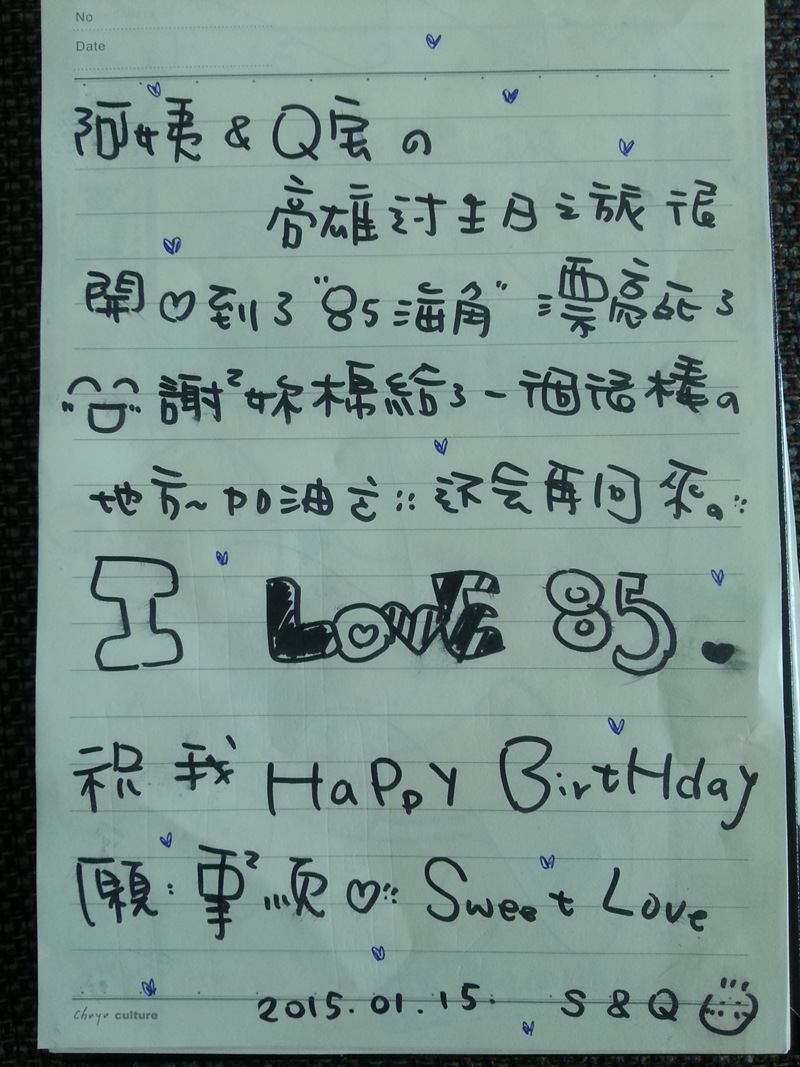 No
Date
阿姨 & Q宝 の
高雄过討生日之旅很
開♡到了"85海角"漂亮死了
謝²妳標給了一個很棒の
地方~加油さ::还会再回來。::
I LOVE 85.
祝我 HaPPY BirtHday
願:事²順♡:: Sweet Love
2015.01.15. S & Q
culture